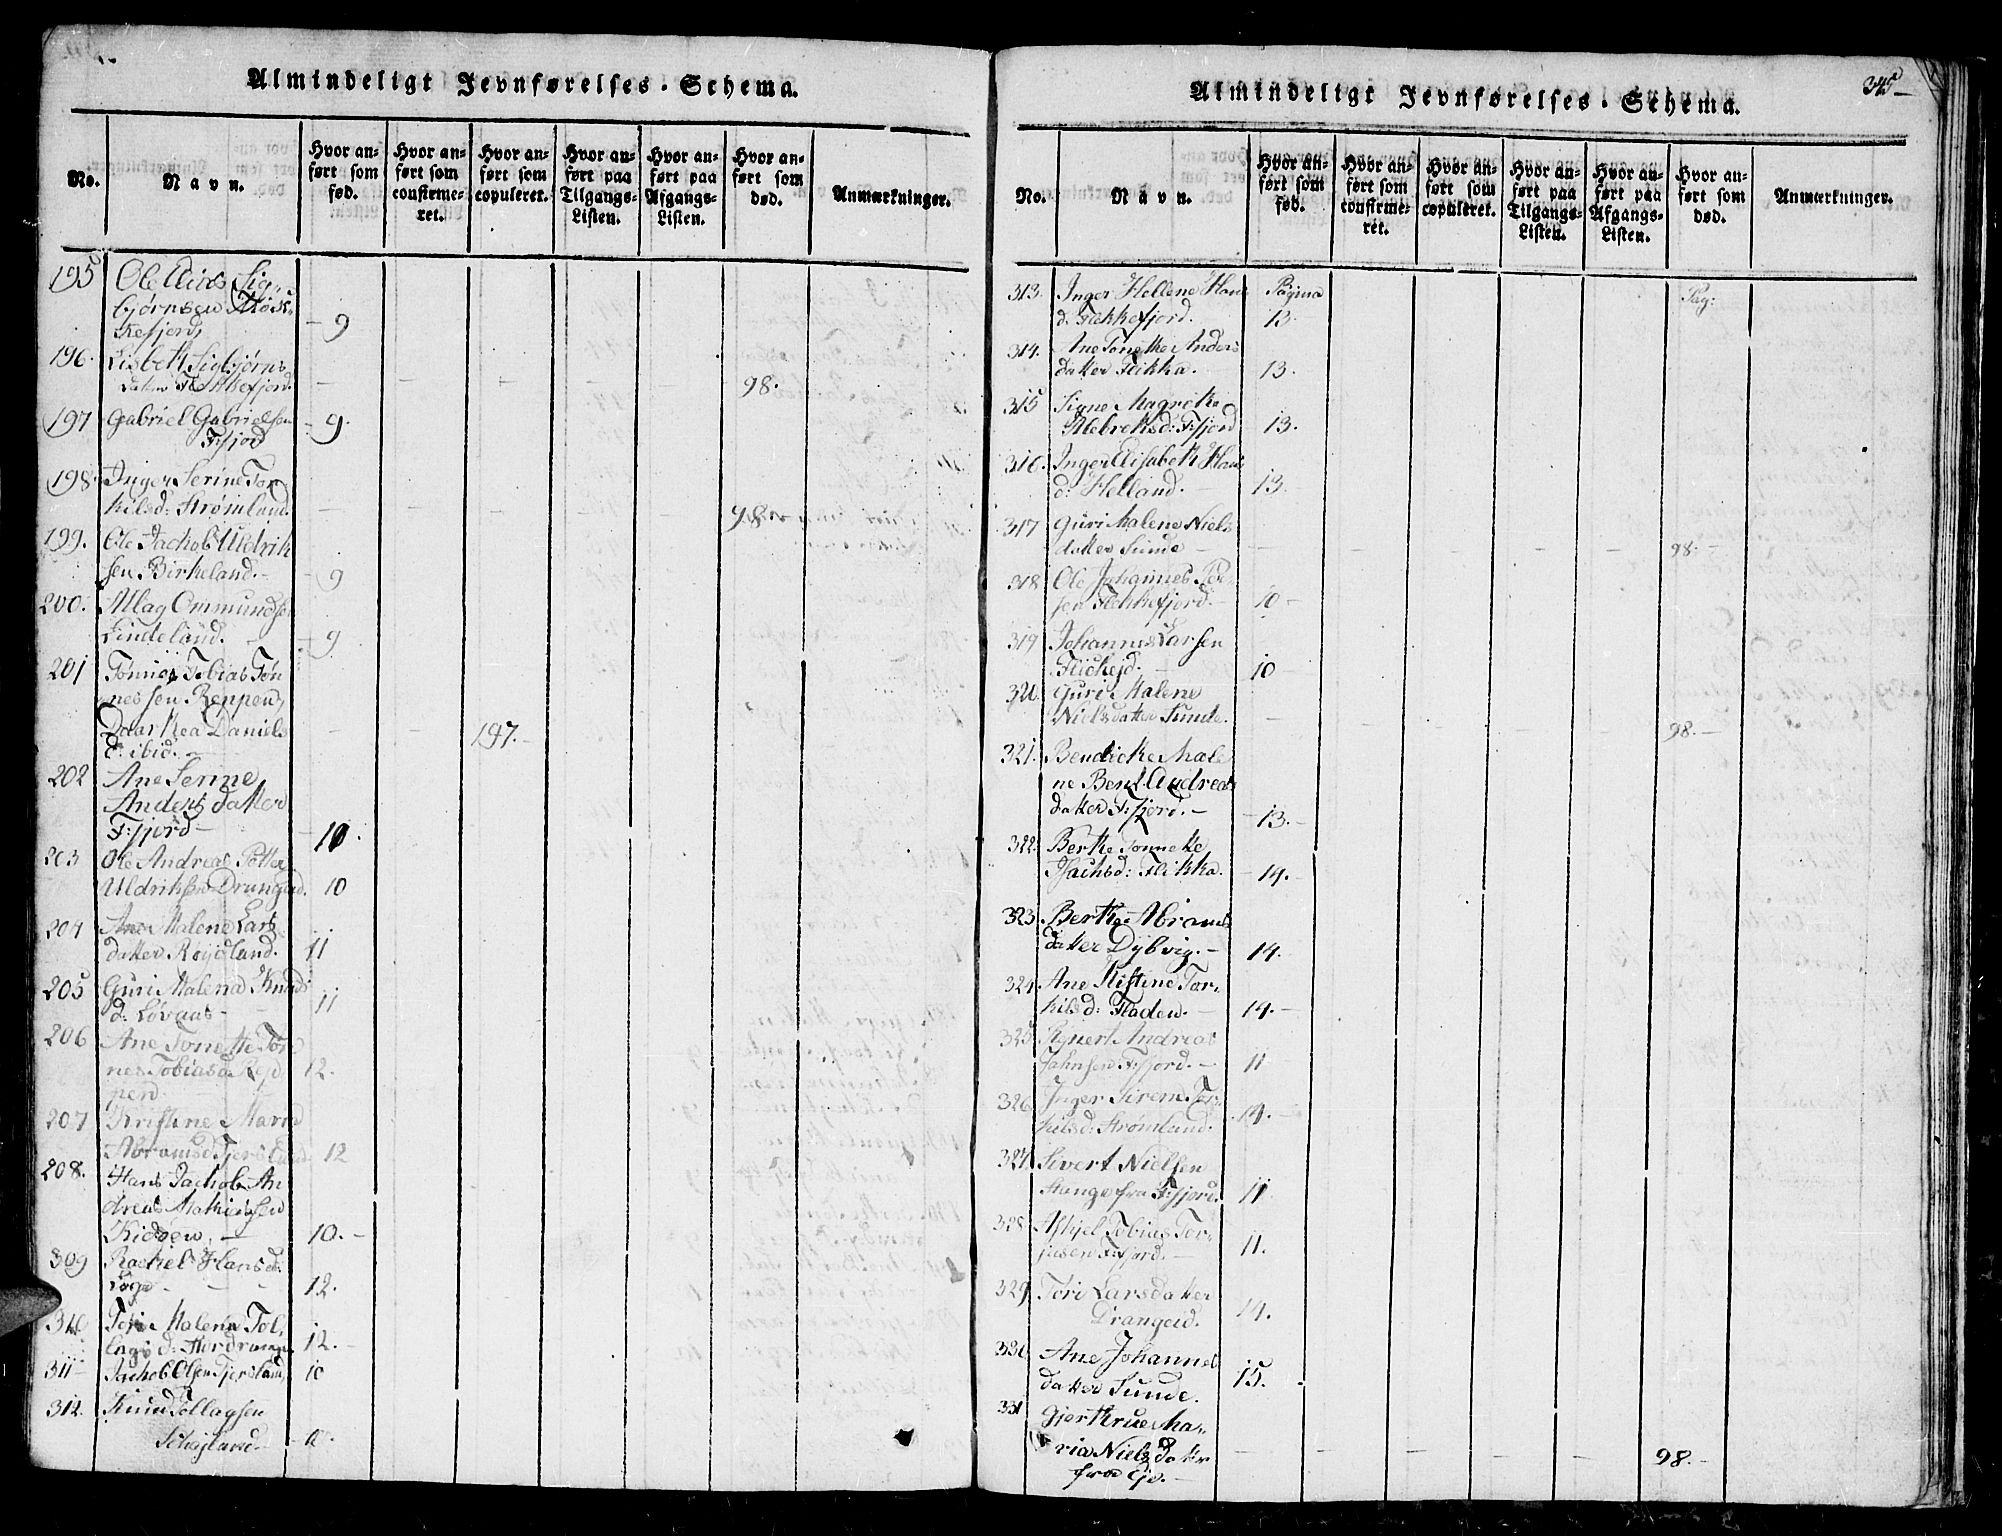 Almindeligt Jevnførelses-Schema.
No.
Navn.
Hvor anført som fød.
Hvor anført som confirmeret.
Hvor anført som copuleret.
Hvor anført paa Tilgangs-Listen.
Hvor anført paa Afgangs-Listen.
Hvor anført som død.
Anmærkninger.
195 Ole Elias Sig-
bjørnsen
kefjord, 9
196. Lisbeth Sigbjørns
datter Flekkefjord. 98.
197 Gabriel Gabrielsen
F:fjord 9.
198. Inger Serine Tor
kilsd: Strømland. 98.
199. Ole Jachob Uldrik
sen Birkeland. 9
200. Allag Ommundsen
Lindeland. 9
201 Tønnes Tobias Tøn
nessen Reppen,
Daarthea Daniels
d: ibid. 197.
202 Ane Serine
Anders datter
F:fjord 10.
203 Ole Andreas Potter
Uldriksen Drangeid. 10
204 Ane Malene Lars
datter Røyseland. 11
205 Guri Malena Knuds
d: Løvaas 11
206 Ane Tonette Tøn
nes Tobiasd: Rep
pen 12.
207 Kristine Maria
Abramsd: Tjersland 12
208. Hans Jachob An
dreas Mathiesen
Kidøen. 10.
309 Rachel Hansd:
Loge 12.
310 Malena Tol-
lagsd: 12.
311 Jachob Olsen Tjersland, 10
312. Knud Tollagsen
10.
Almindeligt Jevnførelses-Schema.
345
No.
Navn.
Hvor anført som fød.
Hvor anført som confirmeret.
Hvor anført som copuleret.
Hvor anført paa Tilgangs-Listen.
Hvor anført paa Afgangs-Listen.
Hvor anført som død.
Anmærkninger.
313. Inger Hellene Hans Pagina Pag:
d: Flekkefjord. 13.
314. Ane Tonette Anders
datter Flikka. 13.
315 Signe Magrethe
Albretsd: F:fjord 13.
316. Inger Elisabeth Hans
d: Helland. 13.
317 Guri Malene Niels
datter Sunde 98.
318 Ole Johannes
sen Flekkefjord. 10
319 Johannes Larsen
10
320. Guri Malene
Nielsdatter Sunde. 98.
321. Bendicte Male
ne Bent Andreas
datter F:fjord. 13.
322. Berthe Tonnette
Jachsd: Flikka. 14.
323. Berthe Abrams
datter Dybvig. 14.
324. Ane Kistine Tor-
kilsd: Fladen. 14.
325. Andreas
Jahnsen F:fjord. 11
326. Inger Sirene Tor-
kilsd: Strømland. 14.
327. Sivert Nielsen
Stange fra F:fjord. 11
328. Askjel Tobias Tor-
jusen F:fjord. 11.
329. Tori Larsdatter
Drangeid. 14.
330. Ane Johannes
datter Sunde. 15.
331 Gjerthrue Ma-
ria Niels Datter
fra 98.